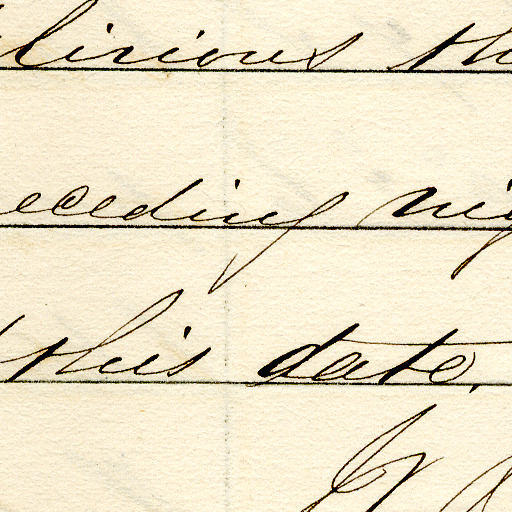 lirious th
eceding nig
this date.